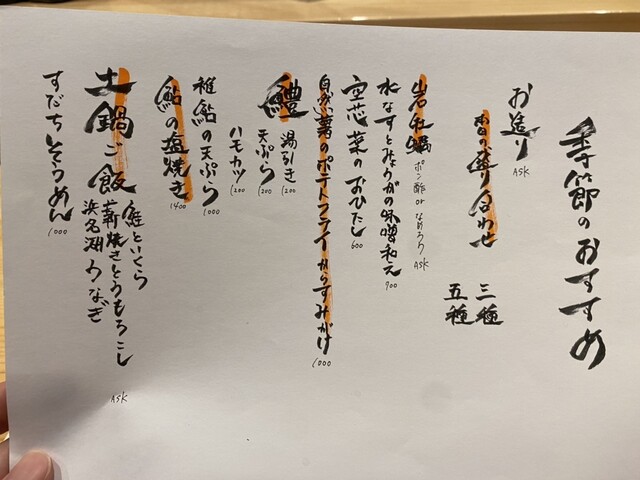 季節のおすすめ
お造り ASK
本日の盛り合わせ
三種
五種
岩牡蠣 ポン酢 or なめろう ASK
水なすとみょうがの味噌和え 900
空芯菜のおひたし 600
自然薯のポテトフライからすみがけ 1000
鱧
湯引き 1200
天ぷら 1200
ハモカツ 1200
稚鮎の天ぷら 1000
鮎の塩焼き 1400
土鍋ご飯
鮭といくら
薪焼きとうもろこし
浜名湖うなぎ ASK
すだちそうめん 1000